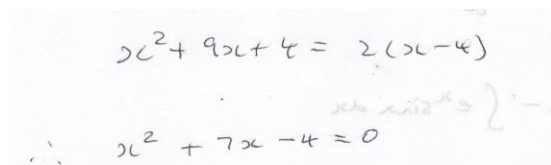 x² + 9x + 4 = 2(x - 4)
∴ x² + 7x - 4 = 0